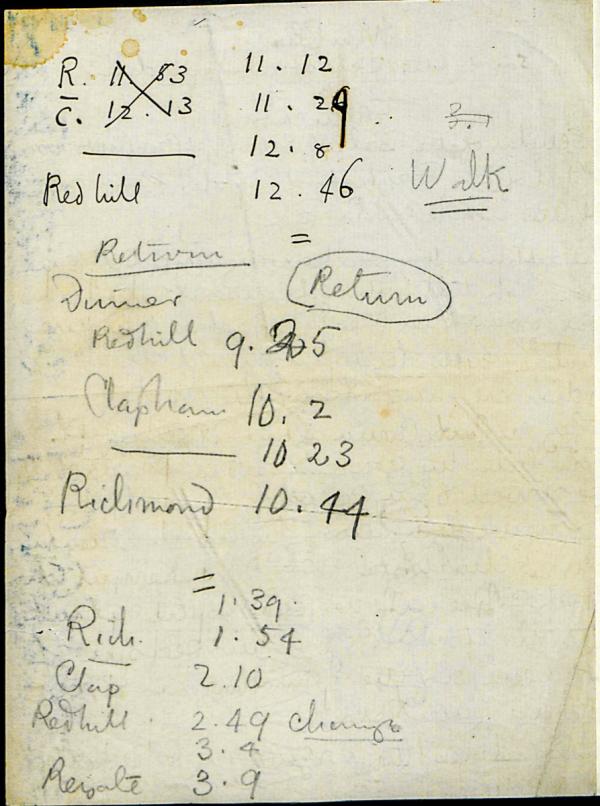 R. 11. 53 11. 12
C. 12. 13 11. 29
12. 8
Redhill 12. 46 Walk
Return
Dinner Return
Redhill 9. 25
Clapham 10. 2
10 23
Richmond 10. 44
1. 39
Rich. 1. 54
Clap 2.10
Redhill 2. 49 change
3. 4
Reigate 3. 9